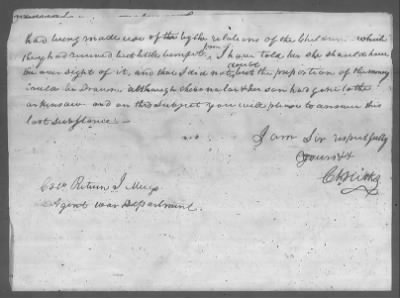 had being made use of the by the relations of the Children which
they had received but little benefit from, I have told her she should have
an over sight of it, and that I did not doubt but the proportion of the money
could be drawn although the and her son had gone to the
arkansaw and on this subject you will please to answer this
last substance —
I am Sir respectfully
Yours &c
Ch Hicks
Colo Return J Meigs
Agent war Department.